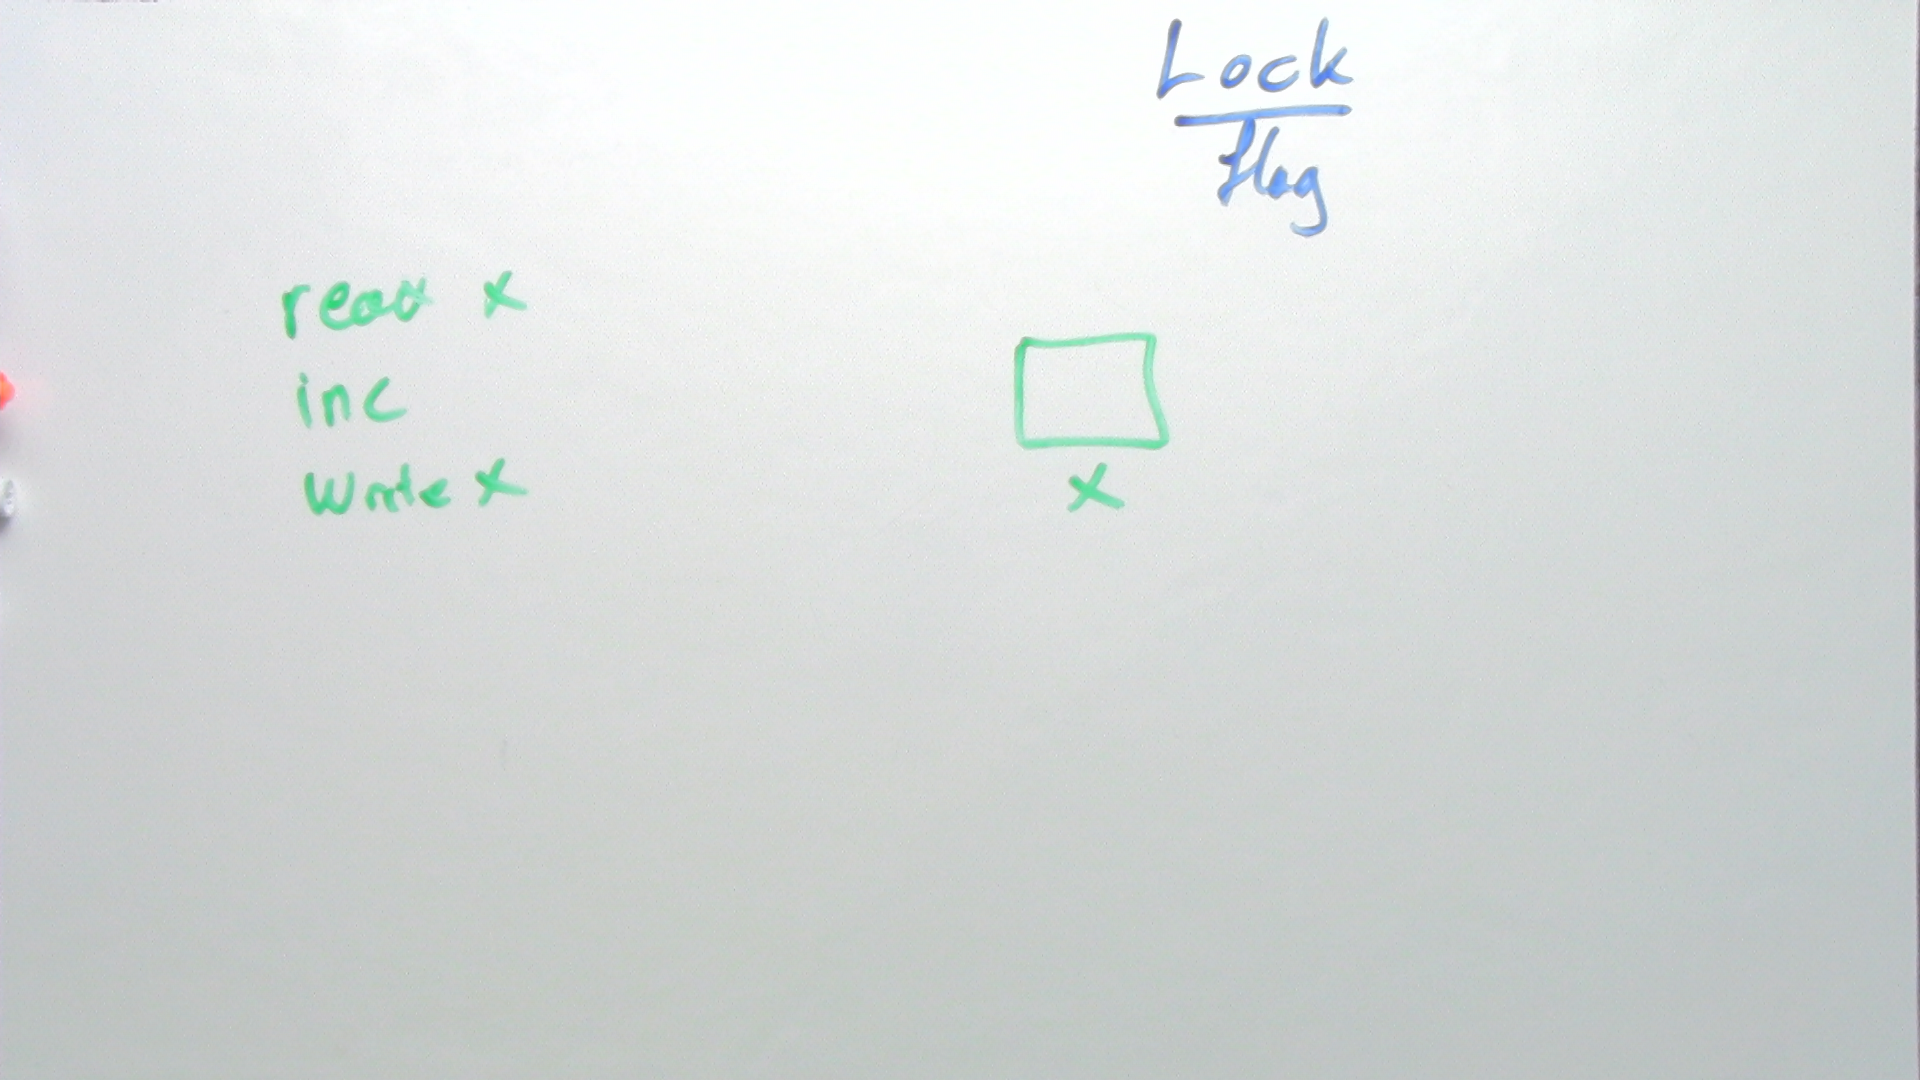 Lock
flag
read x
inc
write x
x